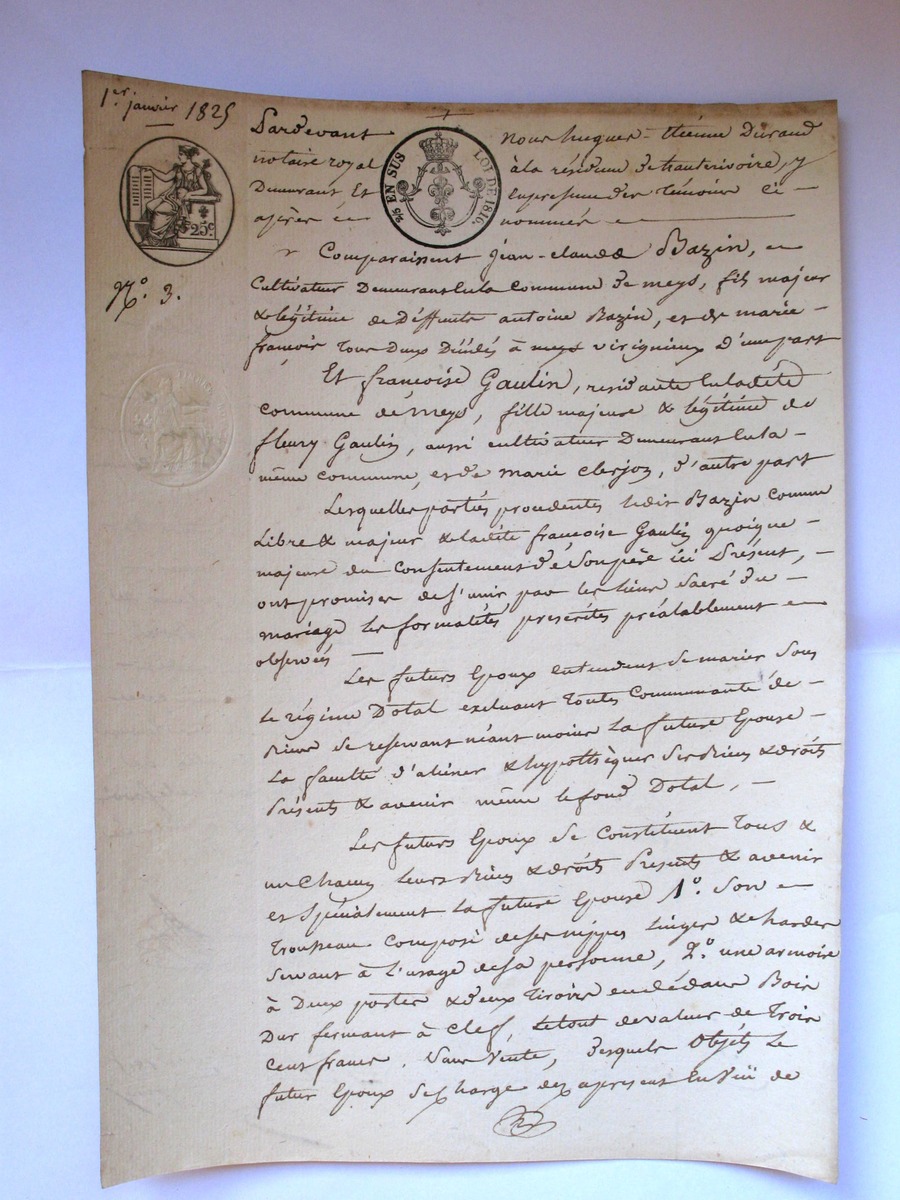 1er. janvier 1825
25c.
2/5 EN SUS LOI DE 1816.
No. 3.
Pardevant nous hugues-étienne Durand
notaire royal à la résidence de hauterivoire, y
Demeurant Et en présence des témoins ci-
après nommés
Comparaissent jean-claude Bazin,
Cultivateur Demeurant en la Commune de meys, fils majeur
& légitime de Déffunts antoine Bazin, et de marie
françois tous Deux Décédés à meys virigneux D'une part
Et françoise Gaulin, résidante en ladite
Commune de meys, fille majeure & légitime de
fleury Gaulin, aussi cultivateur Demeurant en la
même commune, et de marie clerjon, d'autre part
Lesquelles parties procedentes ledit Bazin comme
Libre & majeur & ladite françoise Gaulin quoique
majeure du Consentement de Son père ici Présent,
ont promises de s'unir par les liens Sacré du
mariage les formalités prescrites préalablement
observés
Les futurs Epoux entendent se marier Sous
Le régime Dotal excluant Toutes Communauté de
Biens se reservant néant moins La future Epouse
La faculté d'aliéner & hypothèquer Ses Biens & droits
Présents & avenir même le fond Dotal,
Les futurs Epoux se Constituent Tous &
un Chacun Leurs Biens & droits Présents & avenir
et Spécialement La future Epouse 1o. Son
Trousseau Composé de ses nippes Linges & hardes
Servant à L'usage de sa personne, 2o. une armoire
à Deux portes & deux tiroirs en dédans Bois
Dur fermant à Clef, Le tout de valeur de Trois
Cents francs. Sans Vente, desquels Objéts Le
futur Epoux se charge dez apresent